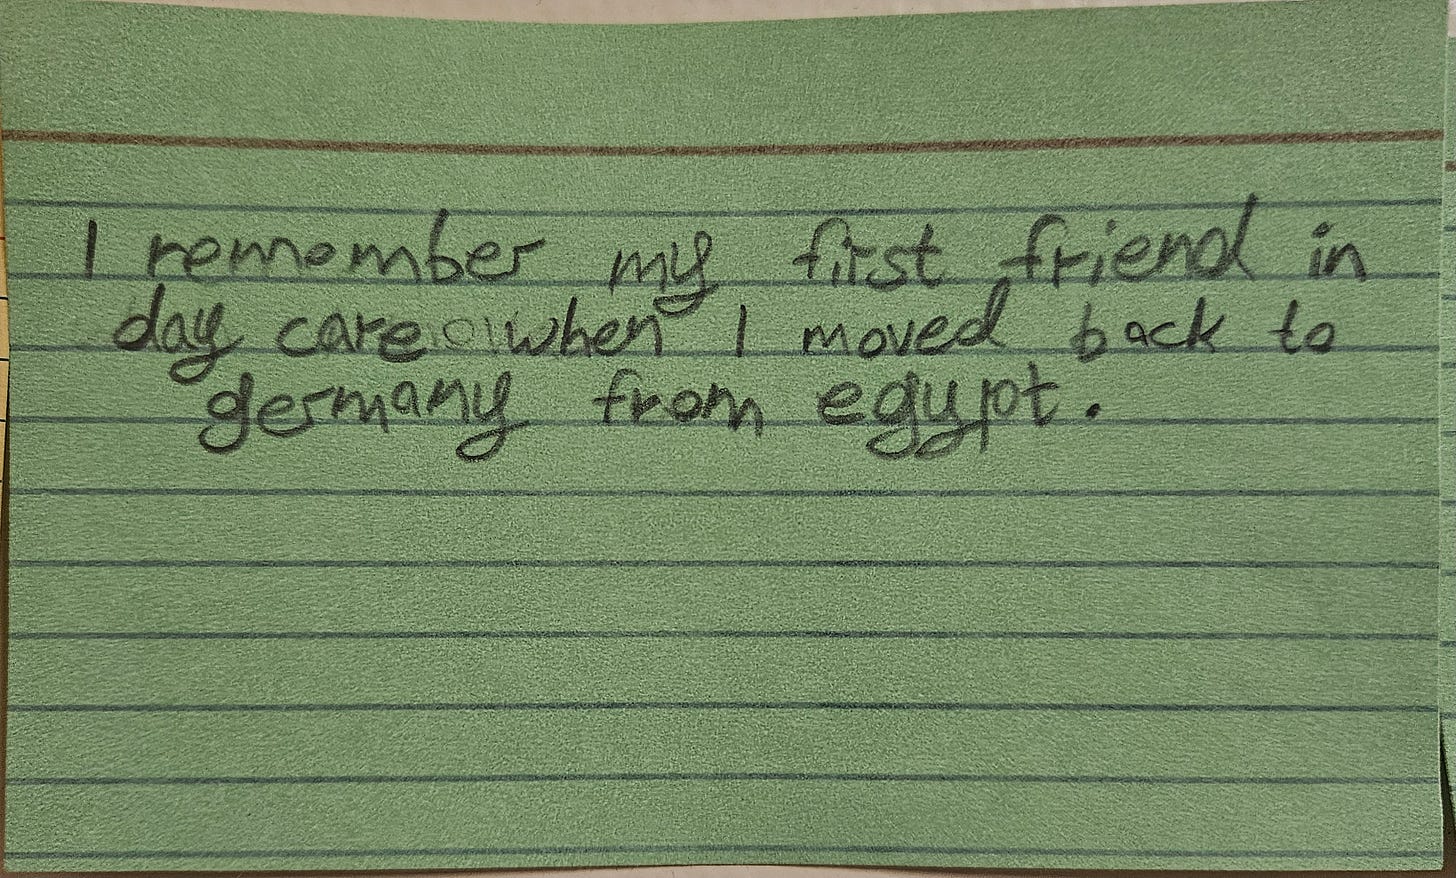 I remember my first friend in
day care when I moved back to
germany from egypt.